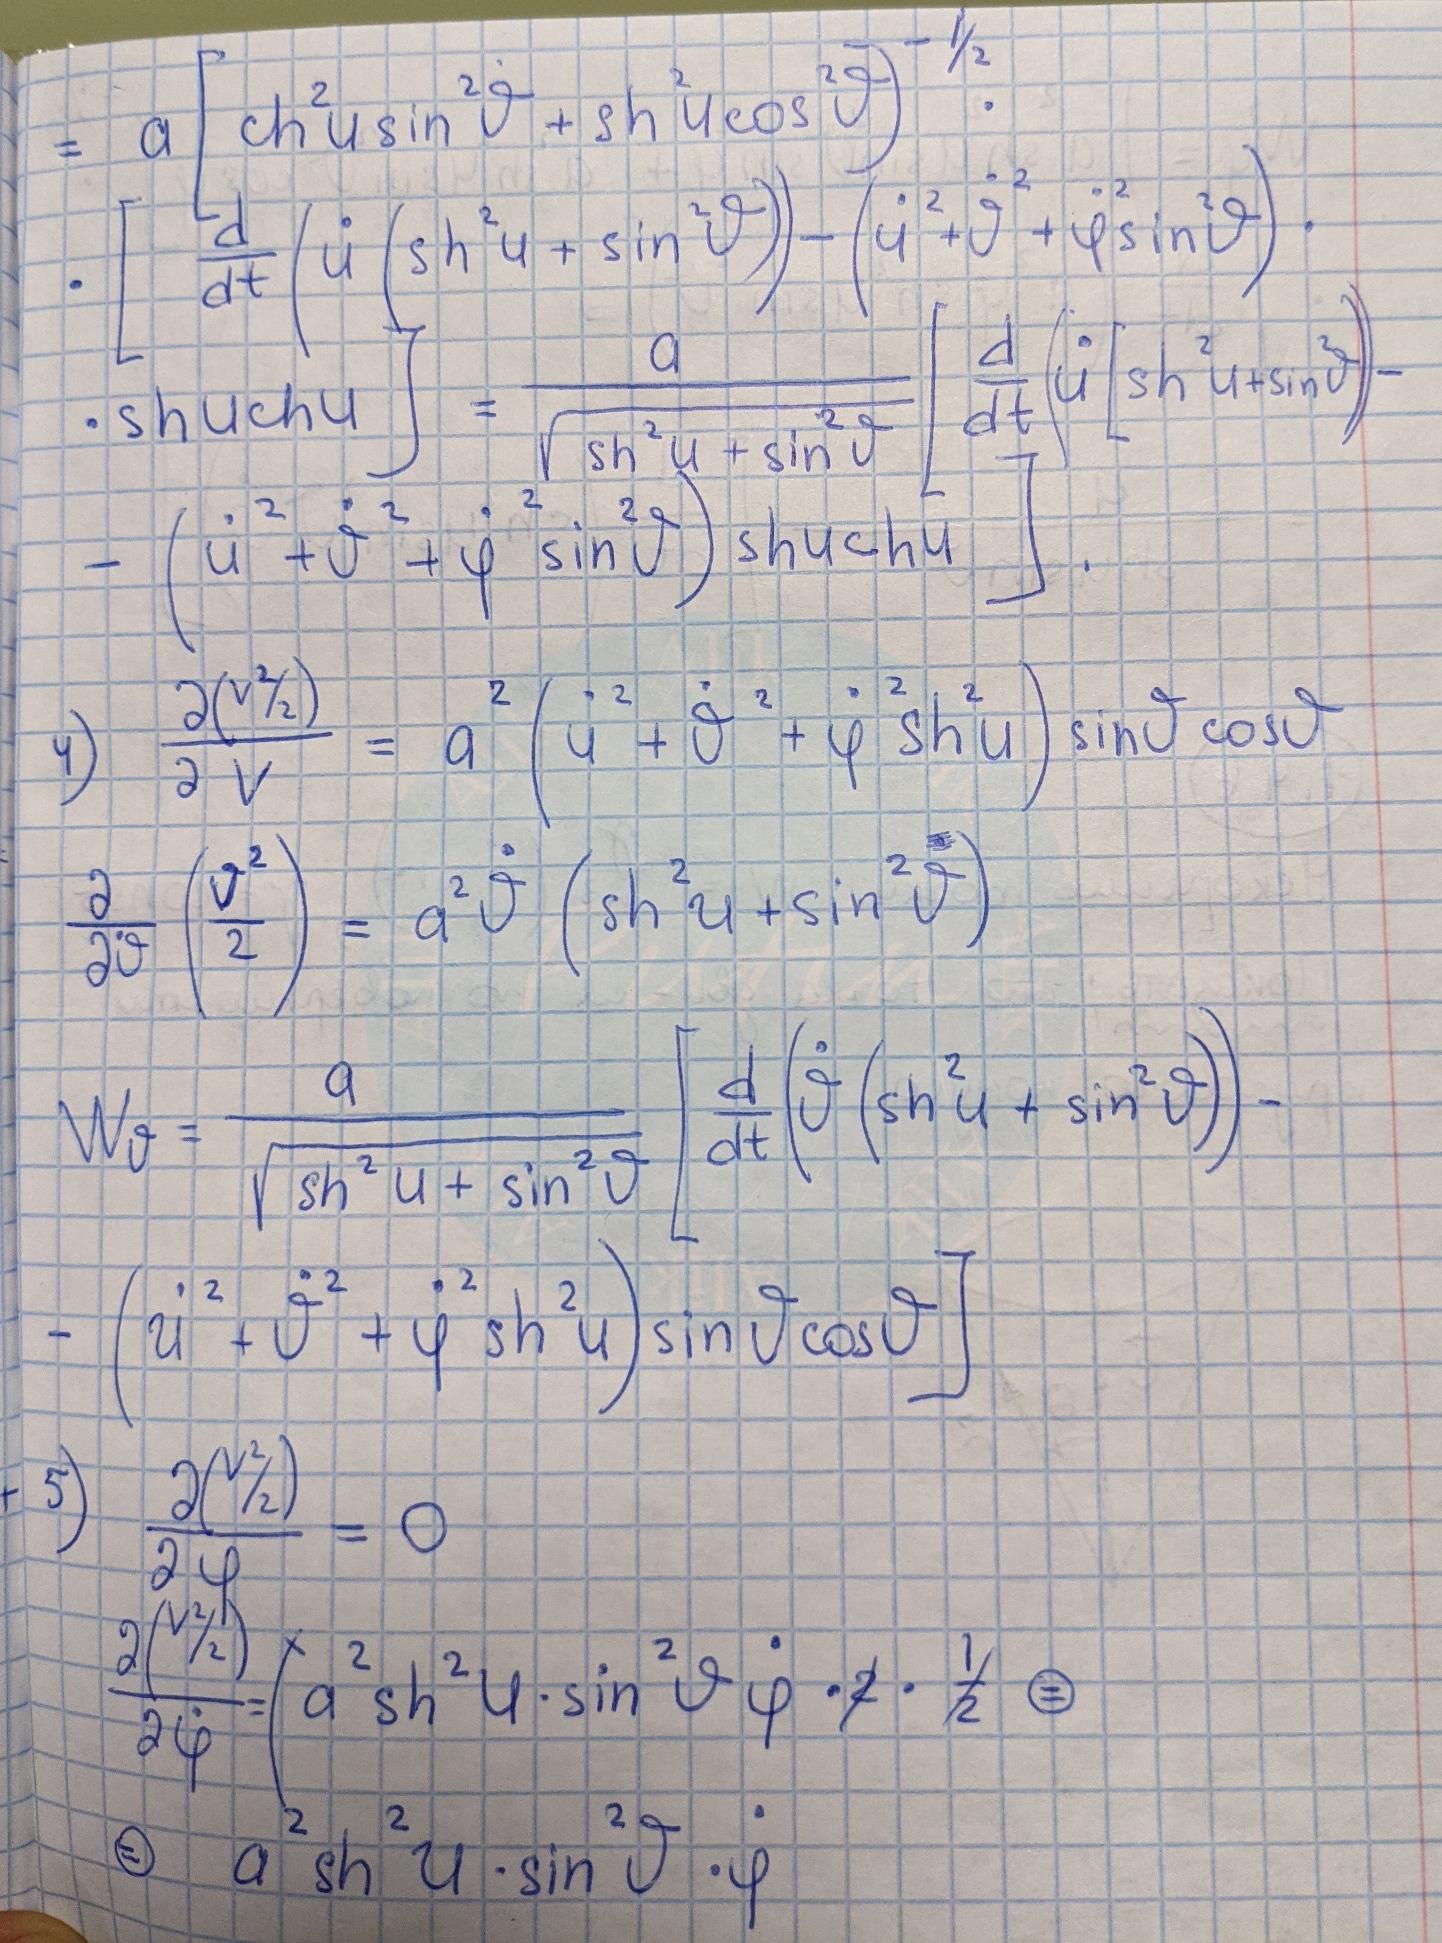 = a [ ch²u sin²ϑ̇ + sh²u cos²ϑ )^(-1/2) ·
· [ d/dt ( u̇ ( sh²u + sin²ϑ )) - ( u̇² + ϑ̇² + φ̇² sin²ϑ ) ·
· shuchu ] = a/√(sh²u + sin²ϑ) [ d/dt ( u̇ [ sh²u + sin²ϑ ) -
- ( u̇² + ϑ̇² + φ̇² sin²ϑ ) shuchu ] .
4) ∂(v²/2)/∂v = a² ( u̇² + ϑ̇² + φ̇² sh²u ) sinϑ cosϑ
∂/∂ϑ̇ ( ϑ²/2 ) = a² ϑ̇ ( sh²u + sin²ϑ )
Wϑ = a/√(sh²u + sin²ϑ) [ d/dt ( ϑ̇ ( sh²u + sin²ϑ )) -
- ( u̇² + ϑ̇² + φ̇² sh²u ) sinϑ cosϑ ]
+ 5) ∂(v²/2)/∂φ = 0
∂(v²/2)/∂φ̇ = ( a² sh²u · sin²ϑ φ̇ · 2 · 1/2 ⊜
⊜ a² sh²u · sin²ϑ · φ̇